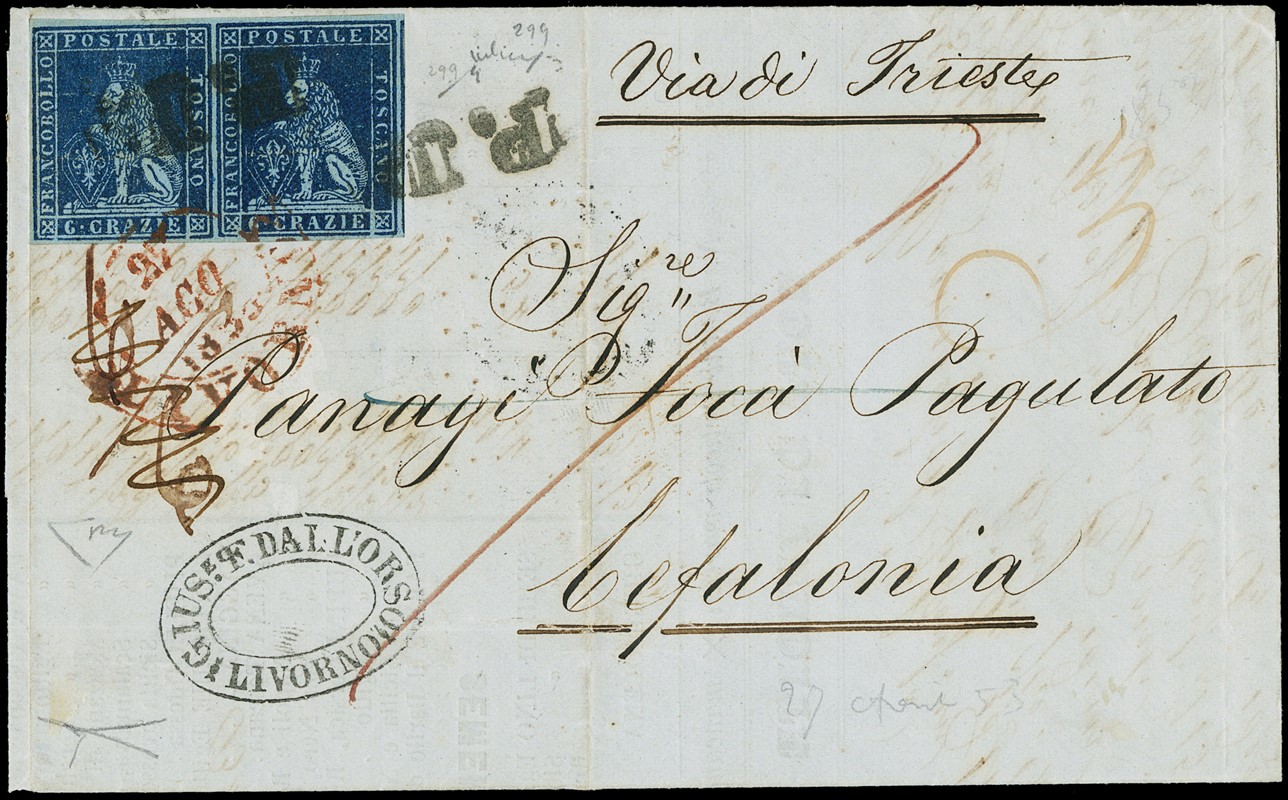 POSTALE
FRANCOBOLLO
TOSCANO
6. CRAZIE
POSTALE
FRANCOBOLLO
TOSCANO
6. CRAZIE
P.D.
P.D.
299
299
Via di Trieste
Sig.re
Panagi Focà Pagulato
Cefalonia
27
AGO
LIVORNO
GIUS.E F. DALL'ORSO
LIVORNO
27 53